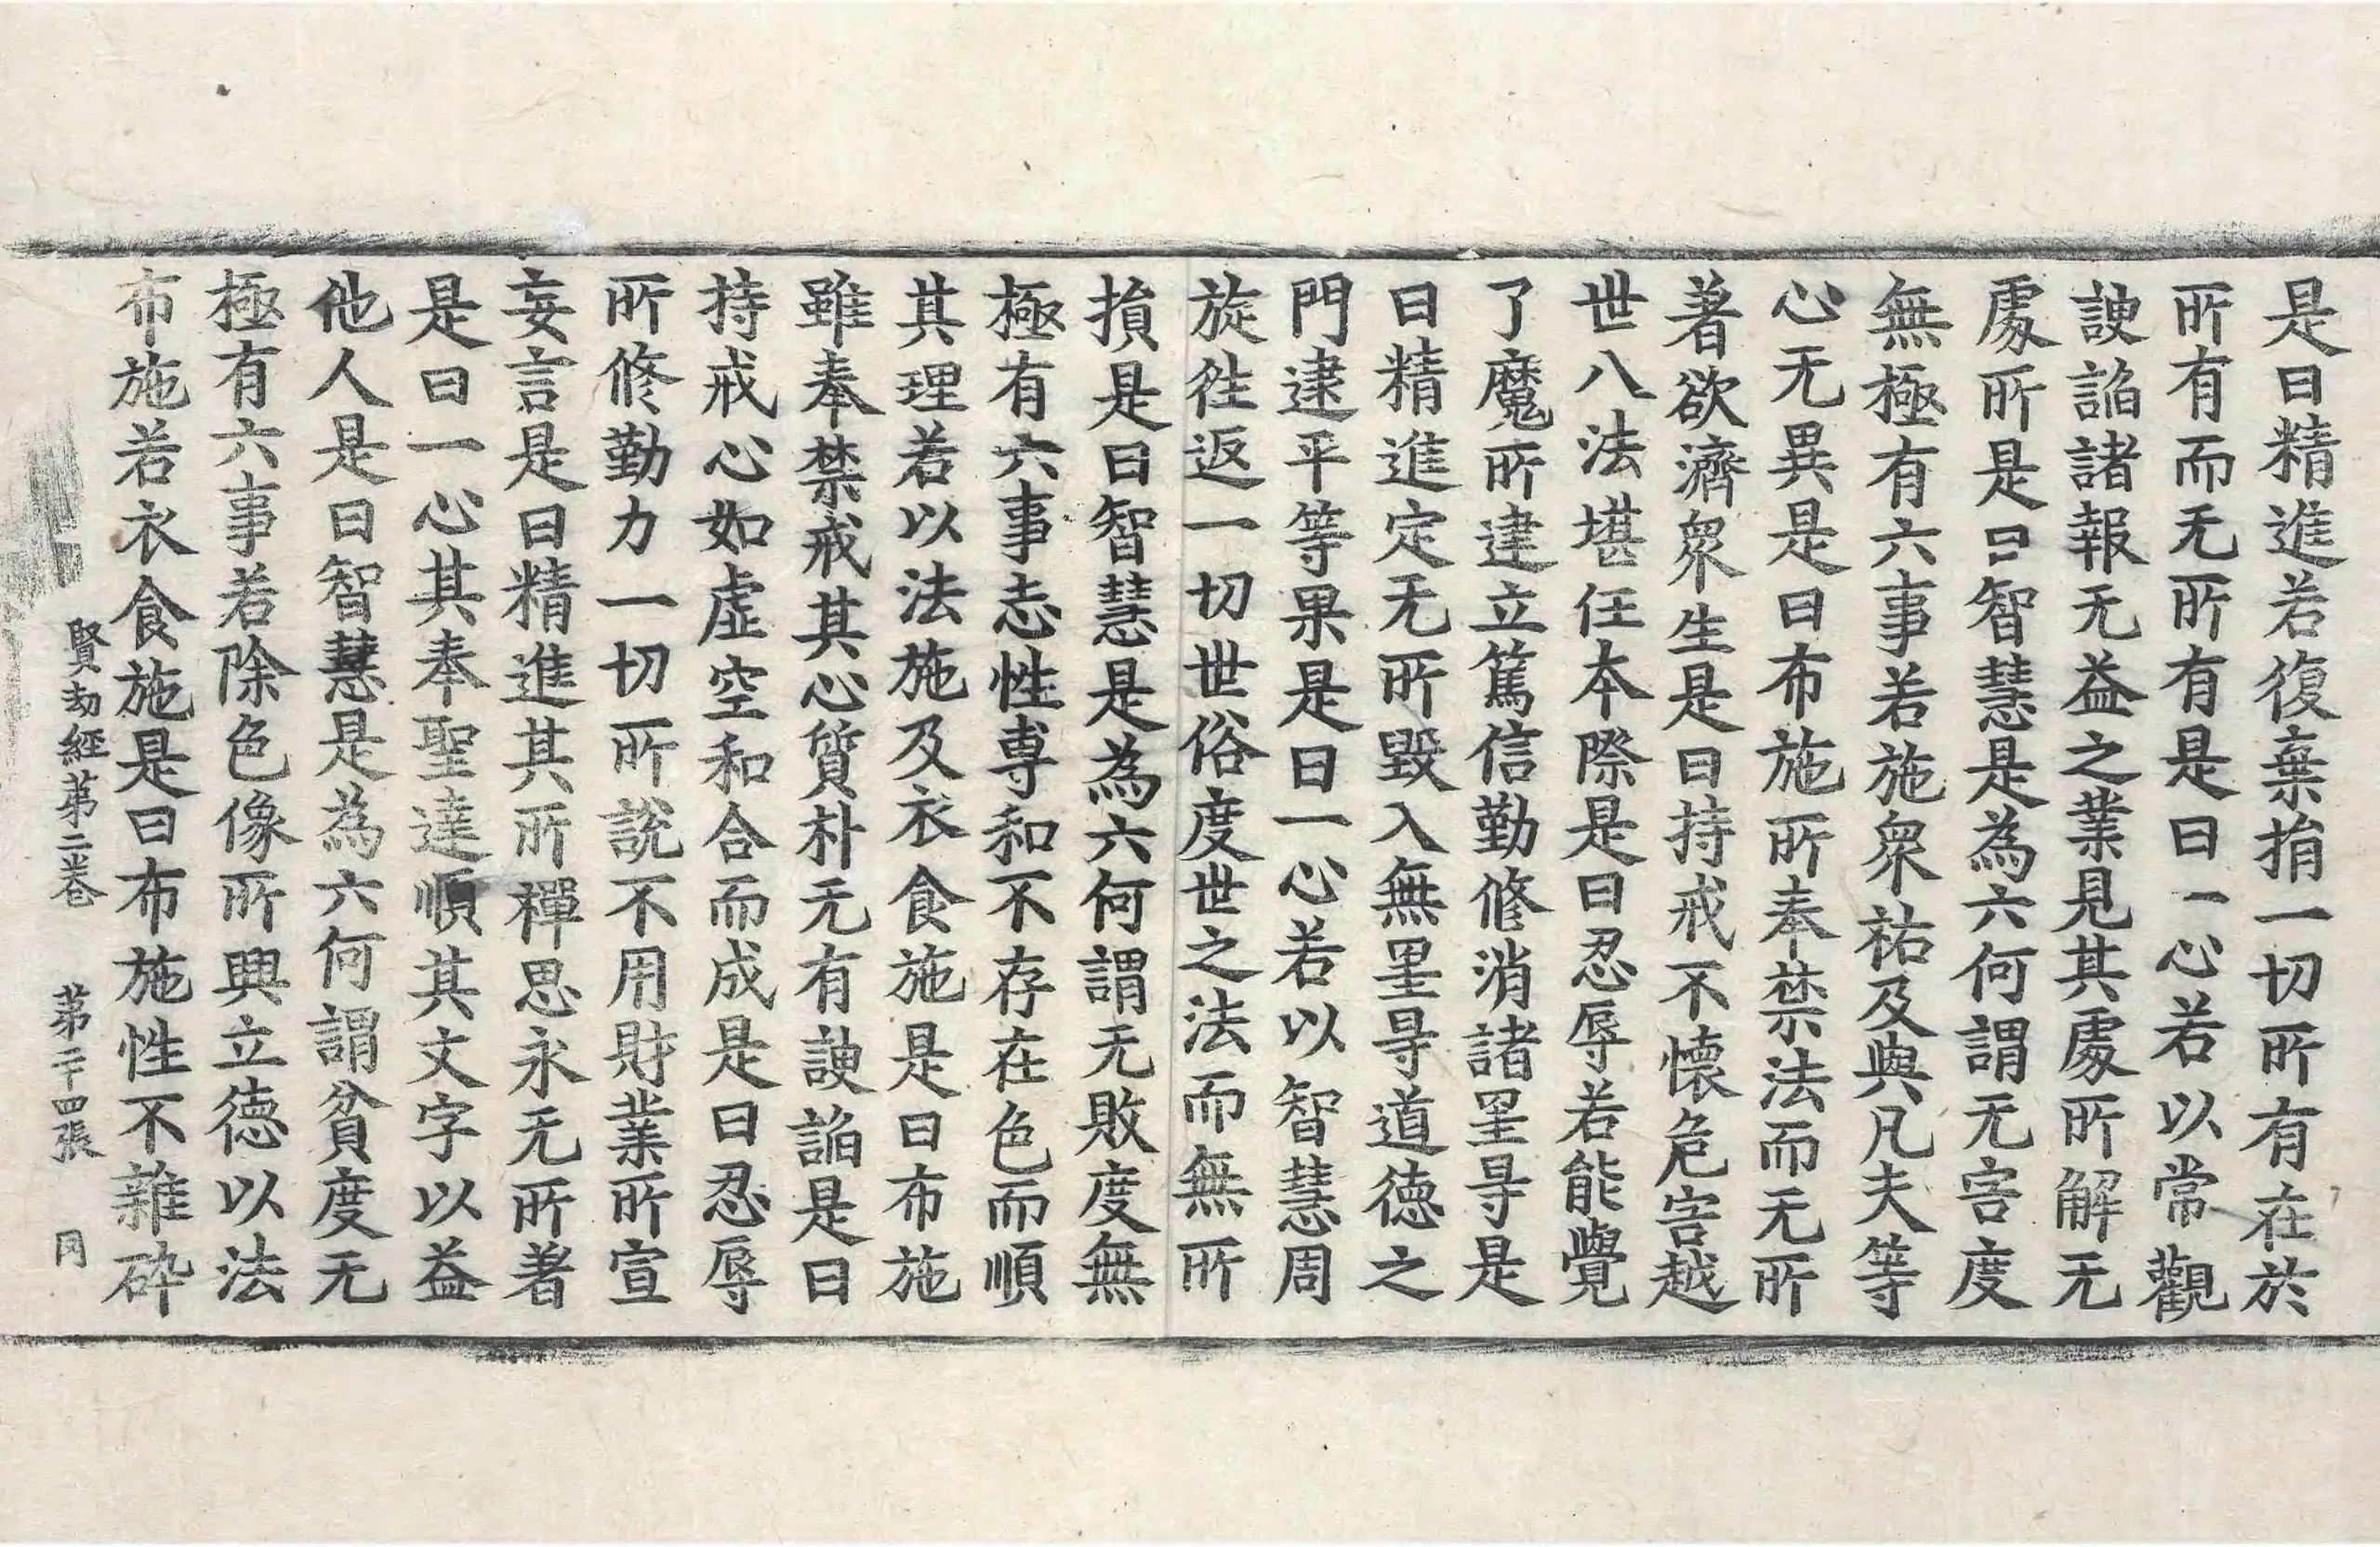 是曰精進若復棄捐一切所有在於
所有而无所有是曰一心若以常觀
諛諂諸報无益之業見其處所解无
處所是曰智慧是為六何謂无害度
無極有六事若施衆祐及與凡夫等
心无異是曰布施所奉禁法而无所
著欲濟衆生是曰持戒不懷危害越
世八法堪任本際是曰忍辱若能覺
了魔所建立篤信勤修消諸罣㝵是
曰精進定无所毀入無罣㝵道德之
門逮平等果是曰一心若以智慧周
旋往返一切世俗度世之法而無所
損是曰智慧是為六何謂无敗度無
極有六事志性專和不存在色而順
其理若以法施及衣食施是曰布施
雖奉禁戒其心質朴无有諛諂是曰
持戒心如虛空和合而成是曰忍辱
所修勤力一切所說不用財業所宣
妄言是曰精進其所禪思永无所著
是曰一心其奉聖達順其文字以益
他人是曰智慧是為六何謂貧度无
極有六事若除色像所興立德以法
布施若衣食施是曰布施性不雜碎
賢劫經第二卷 第二十四張 同